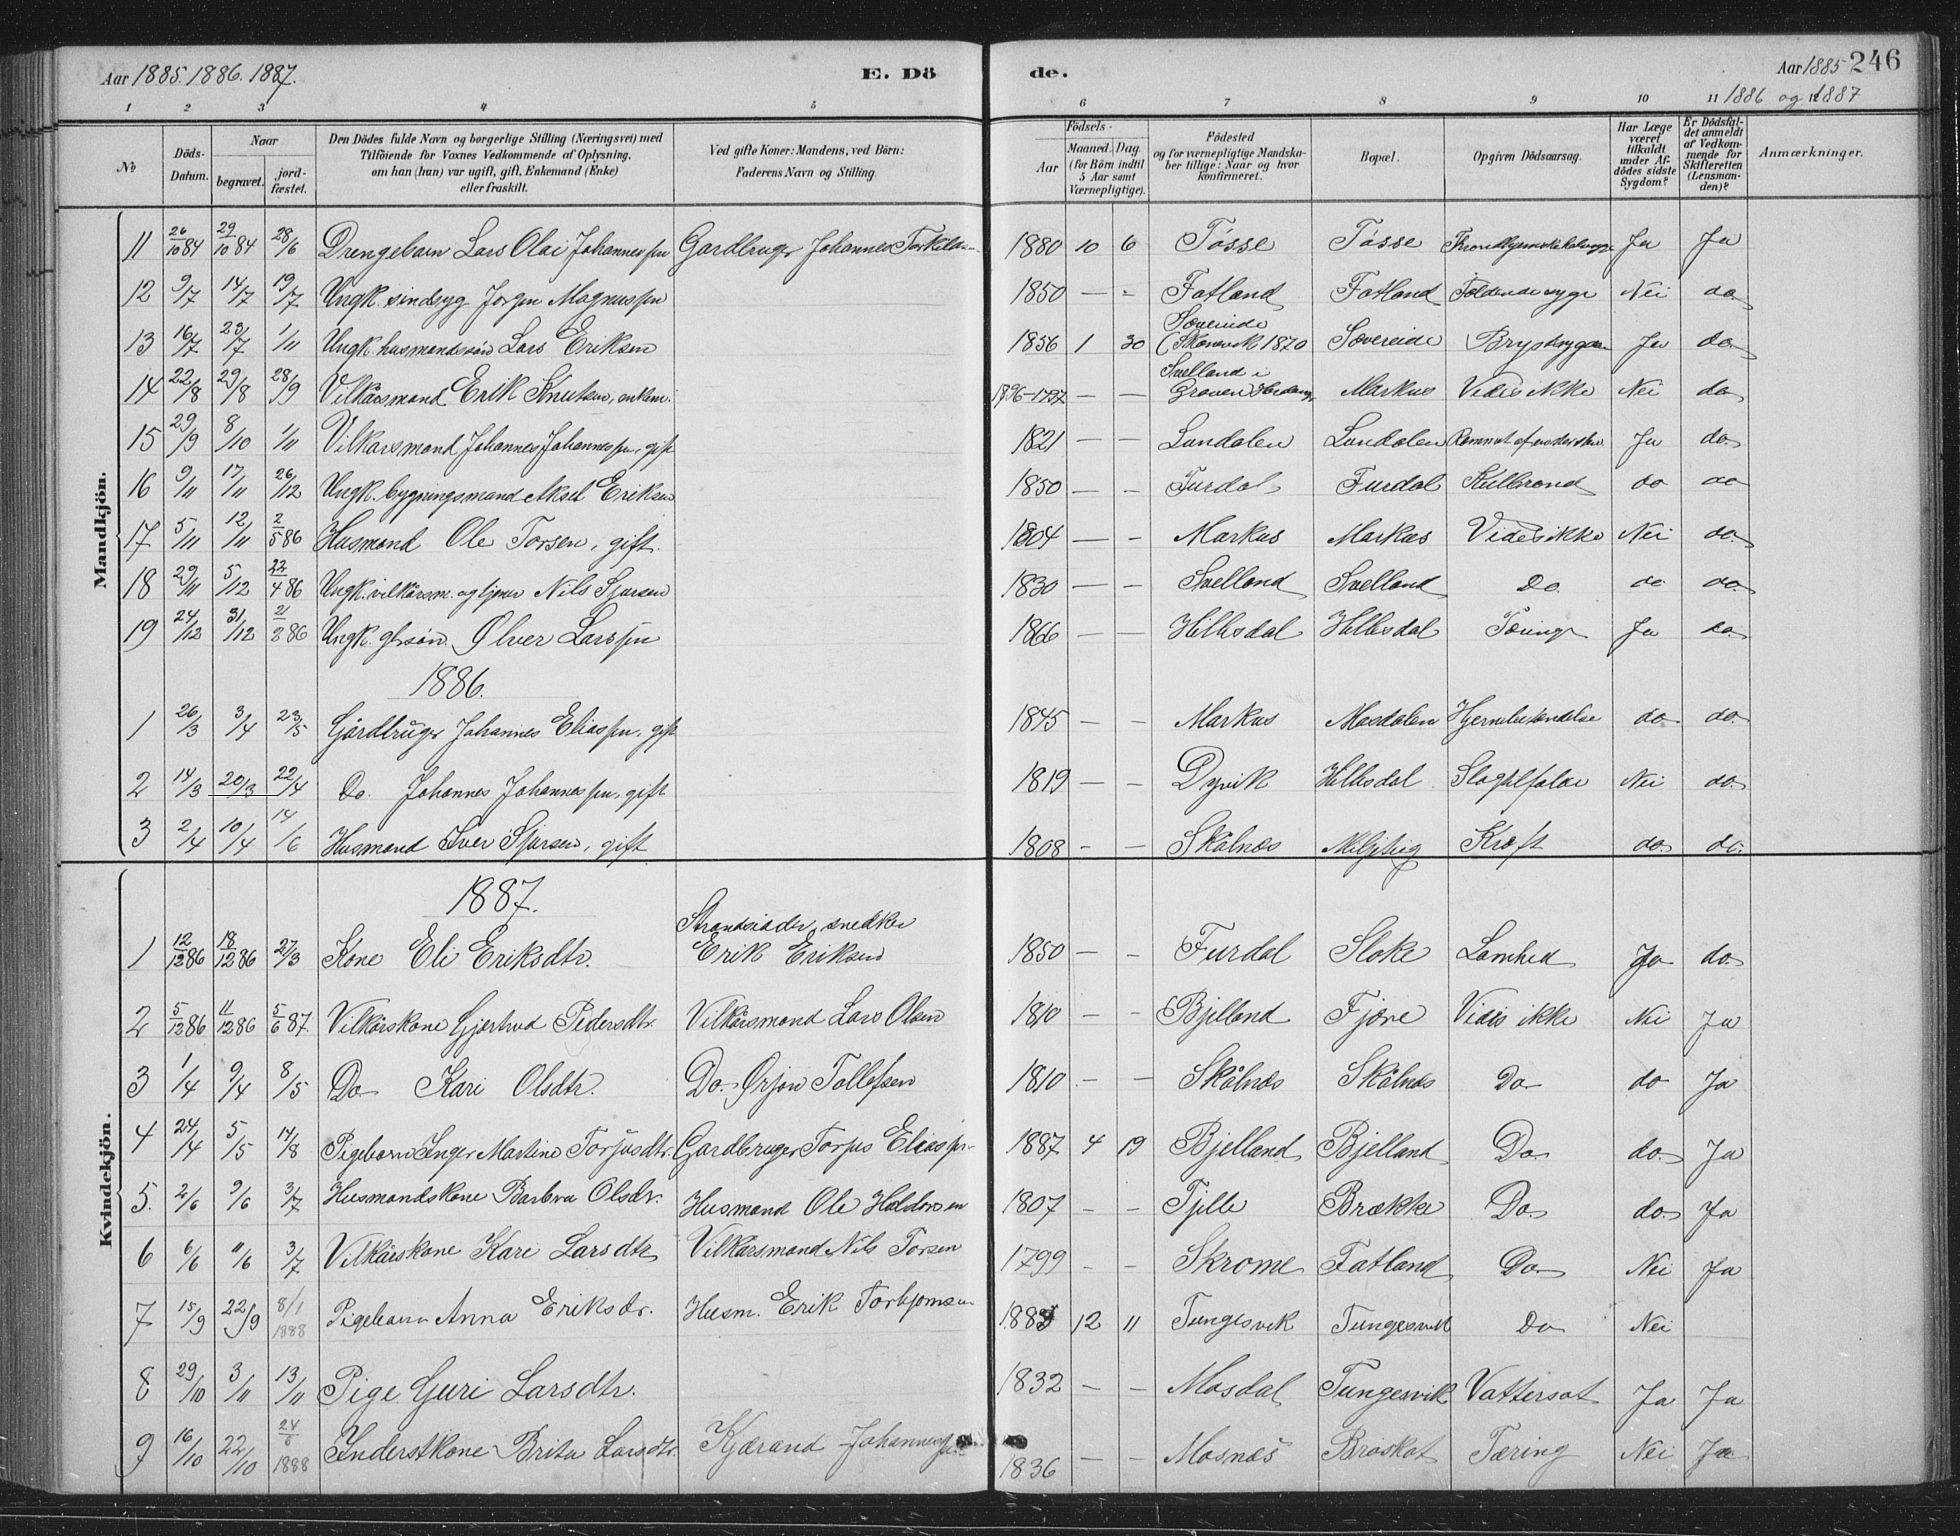 Aar 1885. 1886. 1887.
E. Dö de.
Aar 1885 246
1886 og 1887
1 2 3 4 5 6 7 8 9 10 11 12
No
Döds-Datum.
Naar
begravet.
jord-fæstet.
Den Dödes fulde Navn og borgerlige Stilling (Næringsvei) med
Tilföiende for Voxnes Vedkommende af Oplysning,
om han (hun) var ugift, gift, Enkemand (Enke)
eller fraskilt.
Ved gifte Koner: Mandens, ved Börn:
Faderens Navn og Stilling.
Födsels-
Aar
Maaned. Dag.
(for Börn indtil
5 Aar samt
Værnepligtige).
Födested
og for værnepligtige Mandska-
ber tillige: Naar og hvor
konfirmeret.
Bopæl.
Opgiven Dödsaarsag.
Har Læge
været
tilkaldt
under Af-
dödes sidste
Sygdom?
Er Dödsfal-
det anmeldt
af Vedkom-
mende for
Skifteretten
(Lensman-
den)?
Anmærkninger.
Mandkjön.
11 26/10 84 29/10 84 28/6 Drengebarn Lars Olai Johannessen Gardbruger Johannes Torkilds 1880 10 6 Tösse Tösse Ja Ja
12 9/7 14/7 19/7 Ungk. sindsyg Jørgen Magnussen 1850 — - Fatland Fatland Faldendesyge Nei do
13 16/7 23/7 1/11 Ungk. husmandssøn Lars Eriksen 1856 1 30 Sævereide (Skonevik 1870 Sævereide Brystsyge Ja do
14 22/8 29/8 28/9 Vilkårsmand Erik Knutsen, enkem. 1796-1797 — — Svelland i Graven Hardanger Markus Vides ikke Nei do
15 29/9 8/10 1/11 Vilkårsmand Johannes Johannessen, gift 1821 — — Lundalen Lundalen Ja do
16 9/11 17/11 26/12 Ungk. bygningsmand Aksel Eriksen 1850 — - Furdal Furdal Kulbrand do do
17 5/11 12/11 2/5 86 Husmand Ole Torsen, gift. 1804 — - Markus Markus Vides ikke Nei do
18 29/11 5/12 22/4 86 Ungk. vilkårsm. og tjener Nils Sjursen 1830 — - Svelland Svelland Do do do
19 24/12 31/12 21/2 86 Ungk. gbrsøn. Ølver Larssen 1866 — - Hillesdal Hillesdal Tæring Ja do
1886.
1 26/3 3/4 23/5 Gårdbruger Johannes Eliassen, gift 1845 — - Markus Mosdalen Hjernebetændelse do do
2 14/3 20/3 22/4 Do. Johannes Johannessen, gift 1819 — - Dyvik Hillesdal Slagtilfælde Nei do.
3 2/4 10/4 14/6 Husmand Iver Sjursen, gift 1808 - - Skålnes Miljeteig Kræft do do.
Kvindekjön.
1887.
1 12/12 86 18/12 86 27/3 Kone Eli Eriksdtr. Strandsidder, snedker Erik Eriksen 1850 — - Furdal Sloke Lamhed Ja do
2 5/12 86 11/12 86 5/6 87. Vilkårskone Gjertrud Pedersdtr. Vilkårsmand Lars Olsen 1810 — - Bjelland Fjære Vides ikke Nei Ja
3 1/4 9/4 8/5 Do Kari Olsdtr. Do Ørjan Tollefsen 1810 — - Skålnes Skålnes Do do Ja
4 24/4 5/5 14/8 Pigebarn Inger Martine Torjusdtr. Gardbruger Torjus Eliassen 1887 4 19 Bjelland Bjelland Do do Ja
5. 2/6 9/6 3/7 Husmandskone Barbra Olsdtr. Husmand Ole Haldorsen 1807 - - Tjelle Brække Do do Ja
6 6/6 11/6 3/7 Vilkårskone Kari Larsdtr Vilkårsmand Nils Torsen 1799 - - Skrome Fatland Do Nei Ja
7 15/9 22/9 8/1 1888 Pigebarn Anna Eriksdr. Husm. Erik Torbjørnsen 1883 12 11 Tungesvik Tungesvik Do Nei
8 29/10 3/11 13/11 Pige Guri Larsdtr. 1832 — - Mosdal Tungesvik Vattersot Ja Ja
9 16/10 22/10 24/6 1888 Inderstkone Brita Larsdtr. Kjærand Johannessen 1836 — - Mosnes Braskat Tæring Nei Ja